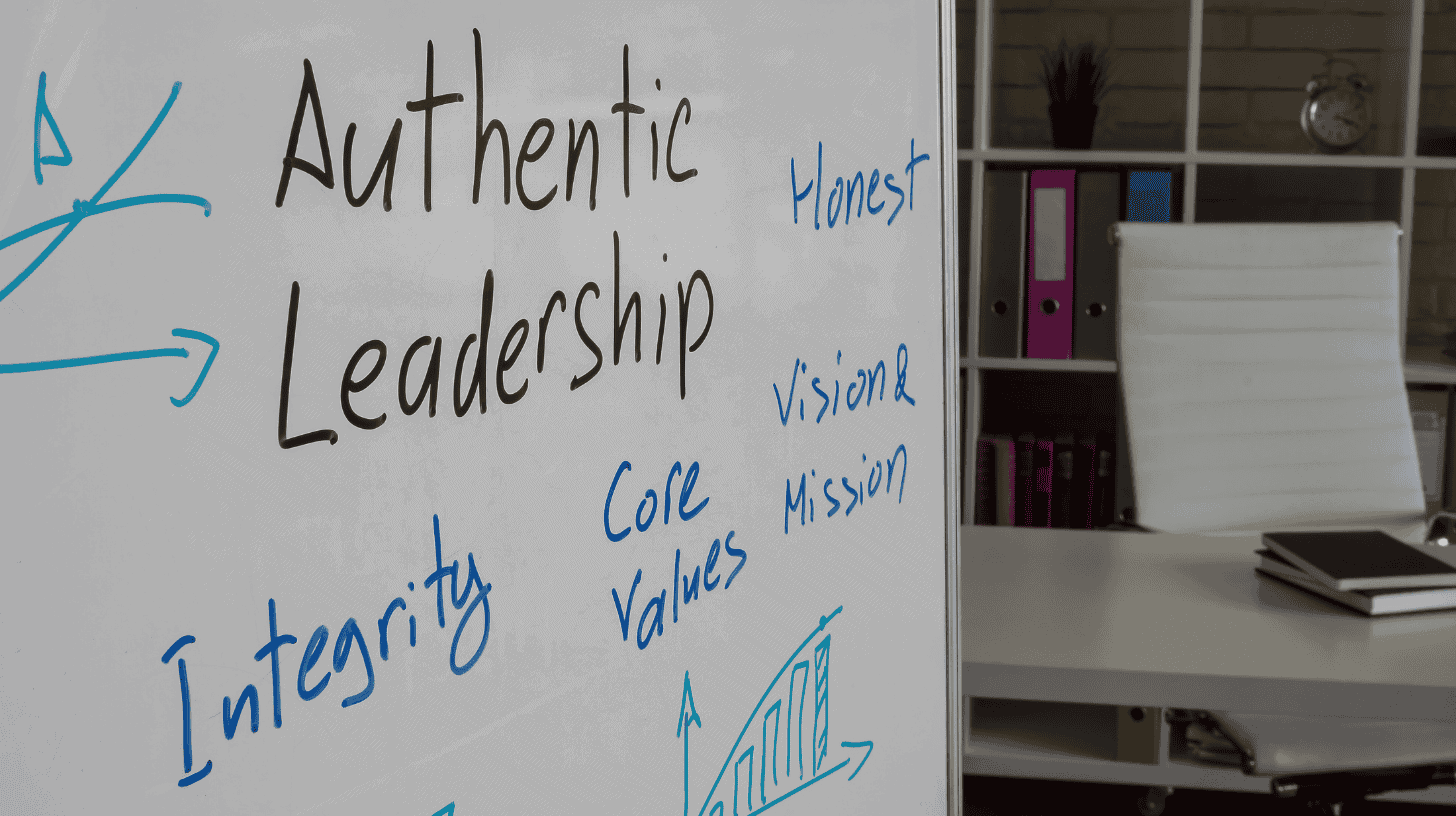 Authentic
Leadership
Honest
Vision &
Mission
Core
Values
Integrity